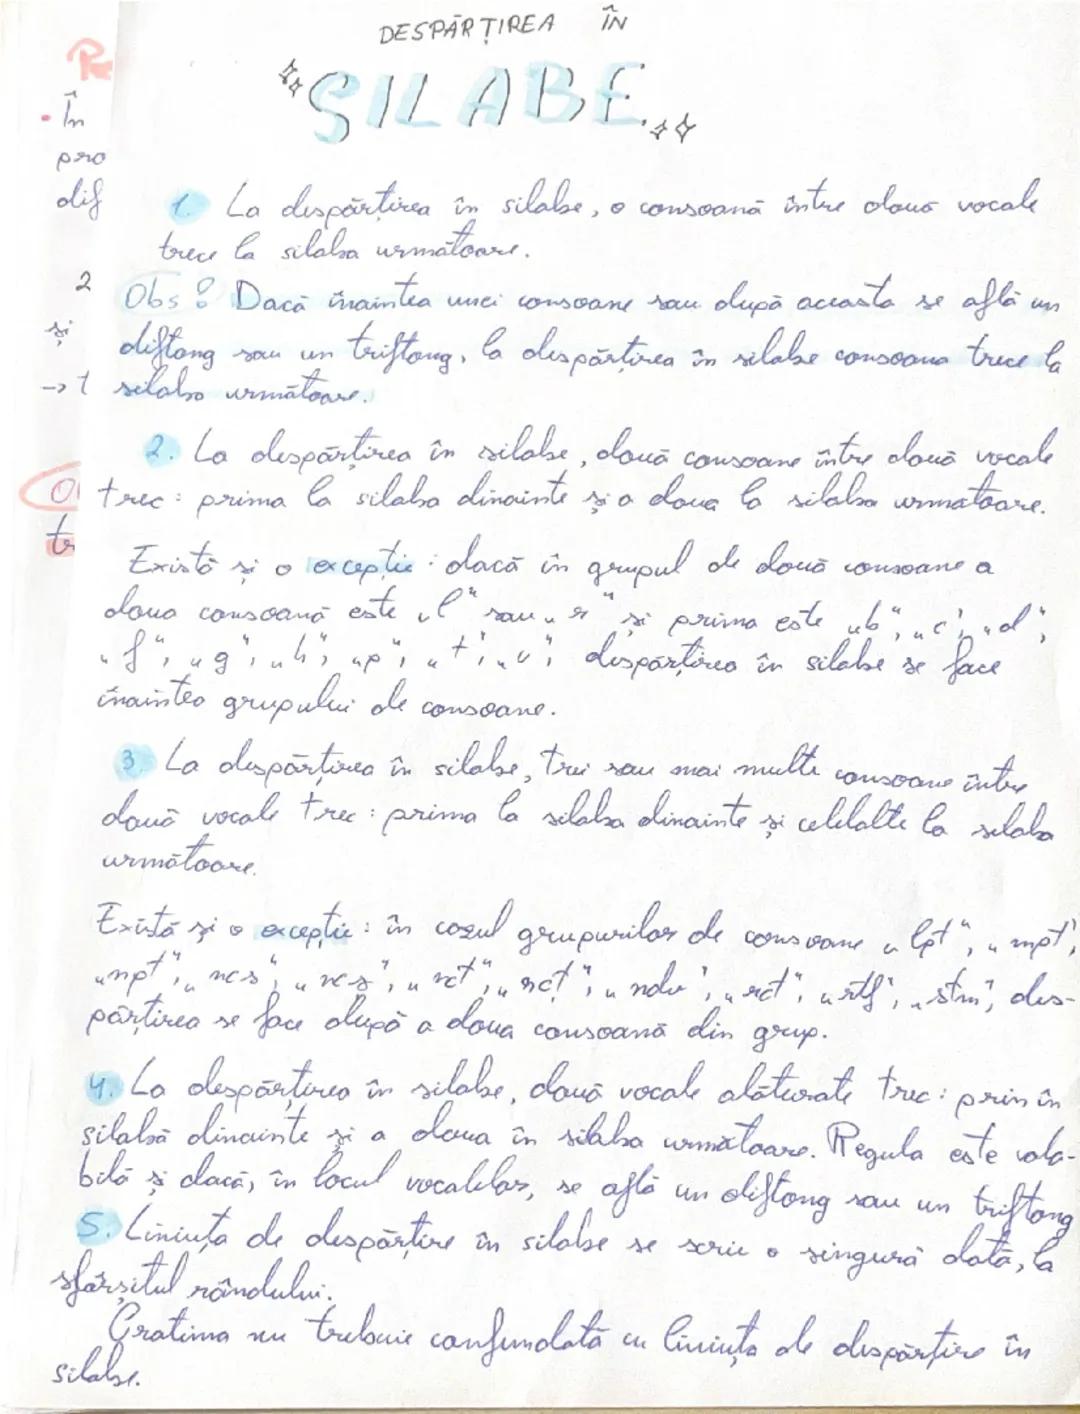 DESPĂRȚIREA ÎN
SILABE
1. La despărțirea în silabe, o consoană între două vocale
trece la silaba următoare.
Obs! Dacă înaintea unei consoane sau după aceasta se află un
diftong sau un triftong, la despărțirea în silabe consoana trece la
silaba următoare.
2. La despărțirea în silabe, două consoane între două vocale
trec: prima la silaba dinainte și a doua la silaba următoare.
Există și o excepție: dacă în grupul de două consoane a
doua consoană este „l" sau „r" și prima este „b", „c", „d",
„f", „g", „h", „p", „t", „v", despărțirea în silabe se face
înaintea grupului de consoane.
3. La despărțirea în silabe, trei sau mai multe consoane între
două vocale trec: prima la silaba dinainte și celelalte la silaba
următoare.
Există și o excepție: în cazul grupurilor de consoane „lpt", „mpt",
„npt", „ncs", „ncș", „nct", „ncț", „ndv", „rct", „rtf", „stm", des-
părțirea se face după a doua consoană din grup.
4. La despărțirea în silabe, două vocale alăturate trec: prim în
silabă dinainte și a doua în silaba următoare. Regula este vala-
bilă și dacă, în locul vocalelor, se află un diftong sau un triftong
5. Liniuța de despărțire în silabe se scrie o singură dată, la
sfârșitul rândului.
Cratima nu trebuie confundată cu liniuța de despărțire în
silabe.
În
pro
dif
2
și
→ t
O
tr